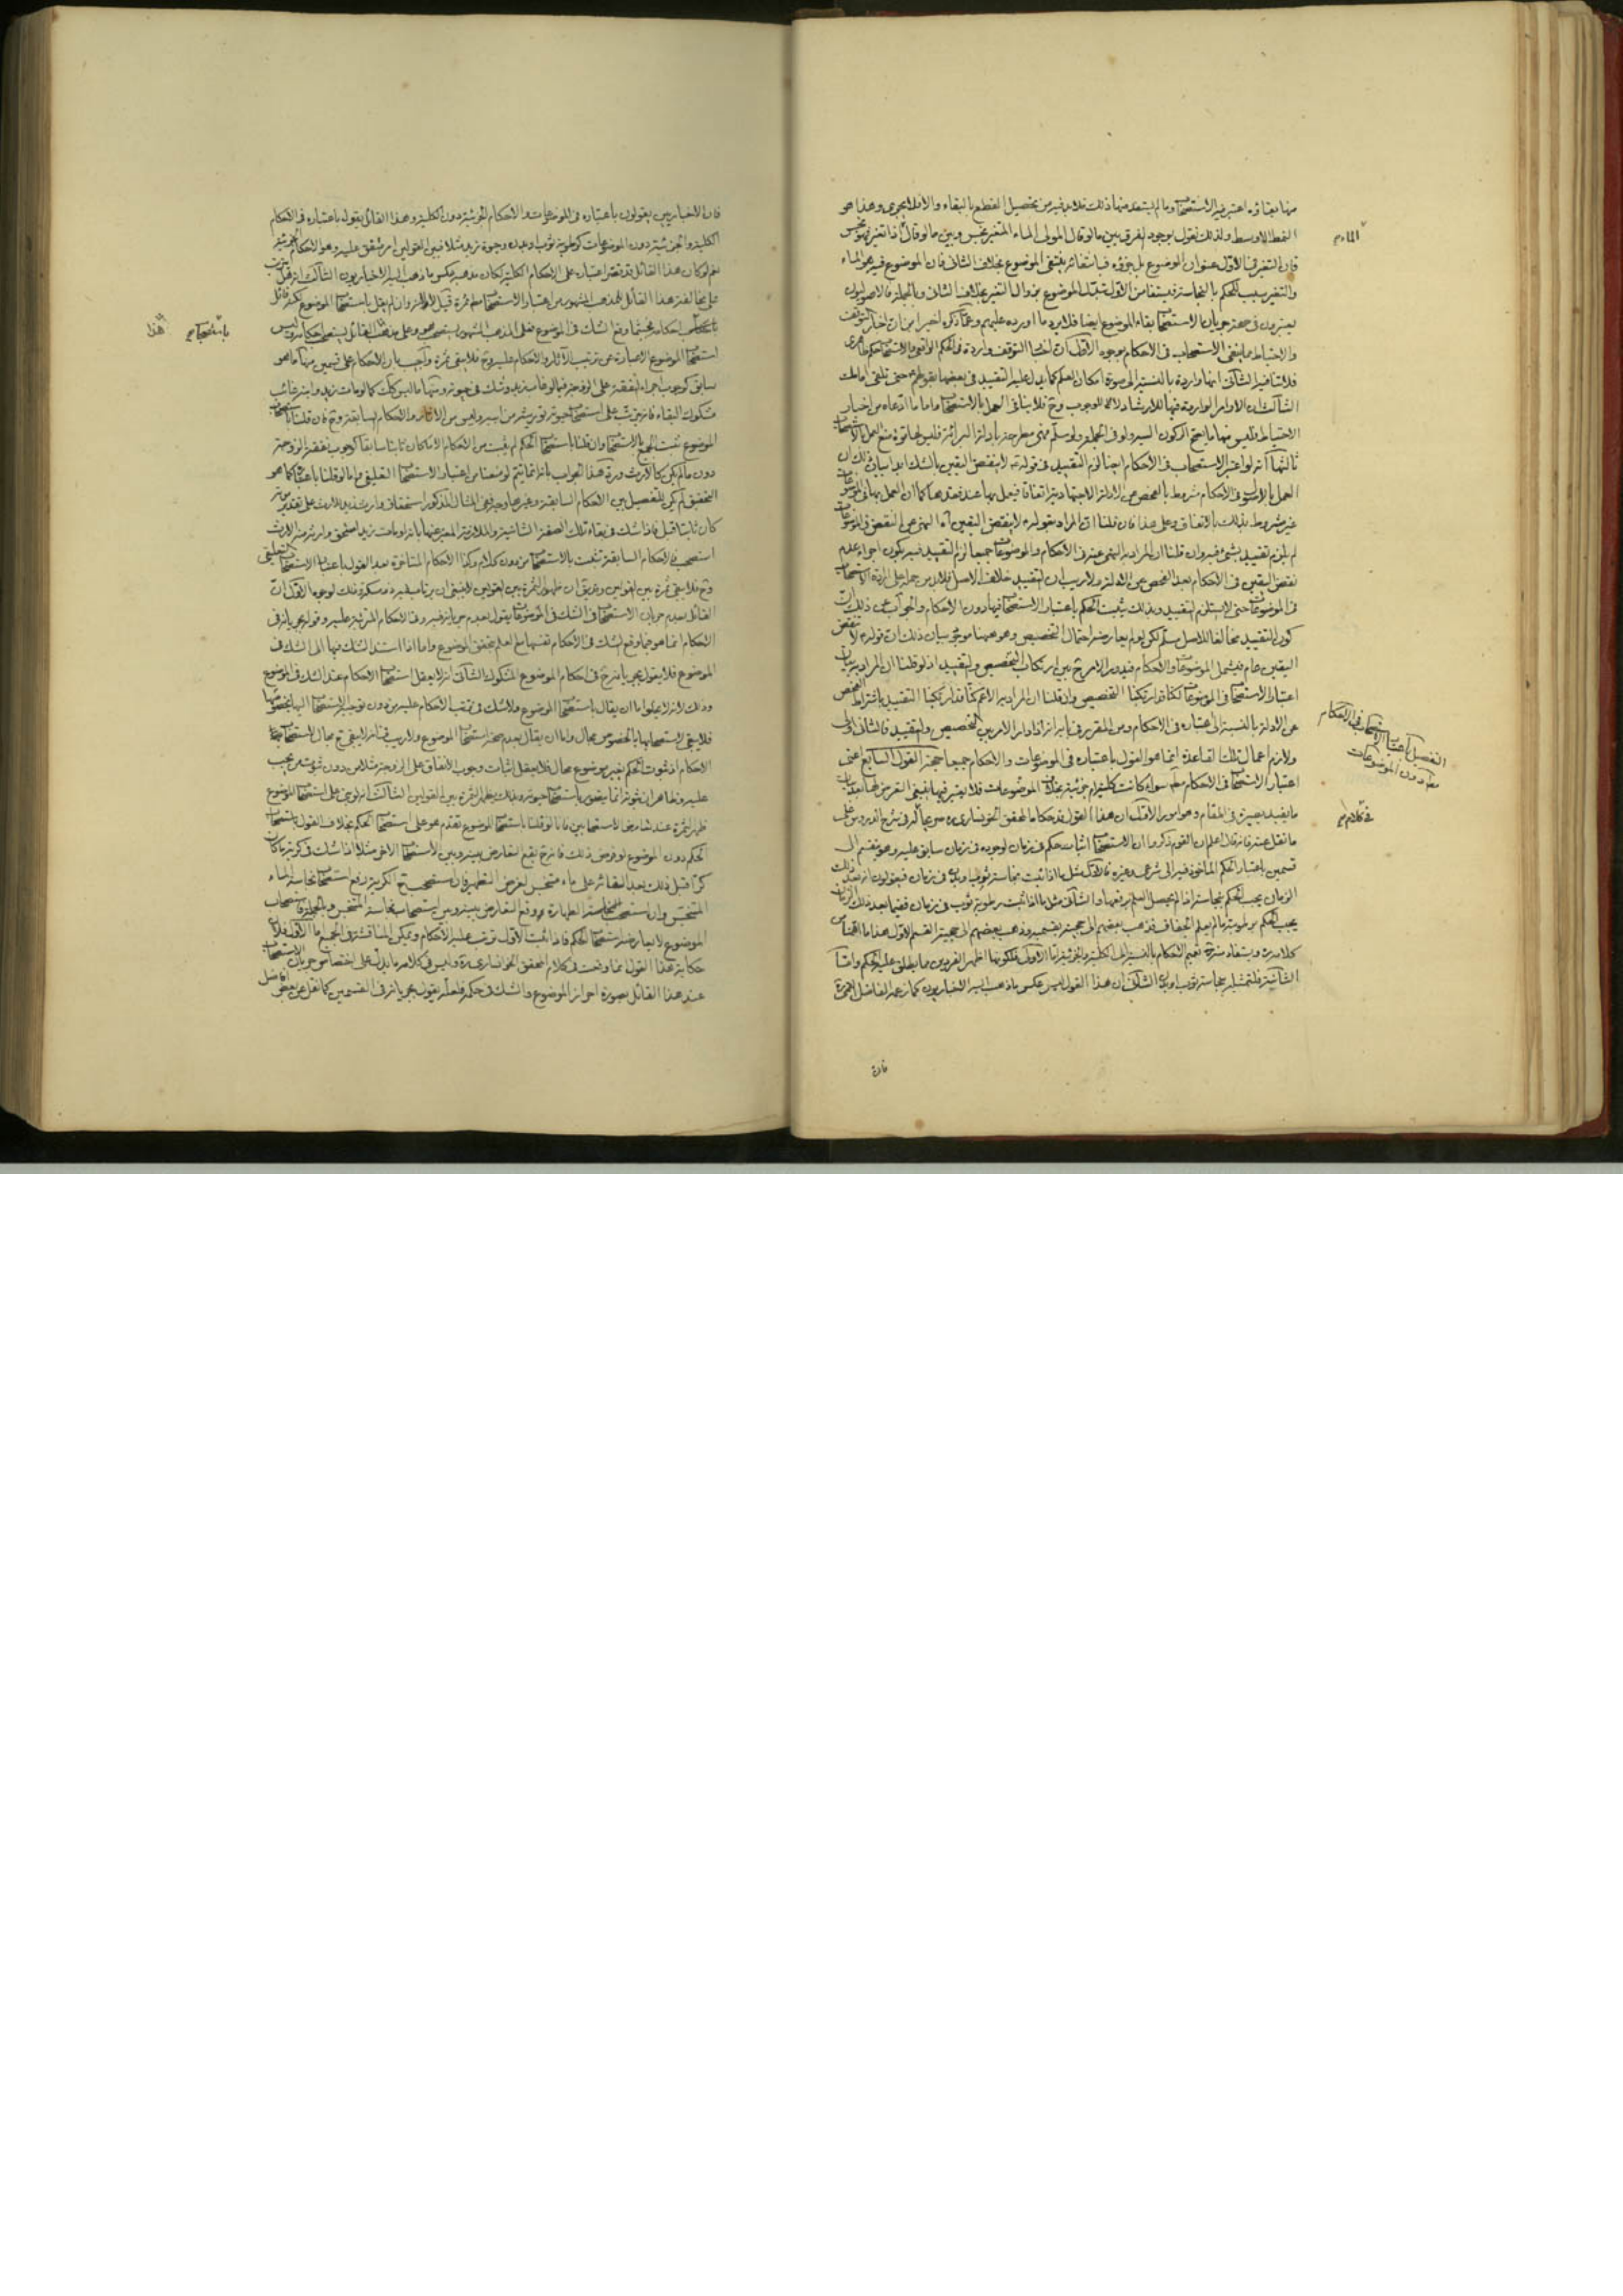 منها بقاؤه اعتبر فيه الاستصحاب وما لم يستعد منها ذلك فلا بد فيه من تحصيل القطع بالبقاء والا فلا يجرى وهذا هو
النمط الاوسط ولذلك نقول بوجود الفرق بين ما لو قال المولى الماء المتغير نجس وبين ما لو قال اذا تغير نجس
فان التغير فى الاول عنوان الموضوع بل جزؤه فبانتفائه ينتفى الموضوع بخلاف الثانى فان الموضوع فيه هو الماء
والتغير سبب للحكم بالنجاسة فيستفاد من الاول تبدل الموضوع بزوال التغير بخلاف الثانى وبالجملة فالاصوليون
يعتبرون فى صحة جريان الاستصحاب بقاء الموضوع ايضا فلا يرد ما اورده عليهم وعما ذكره اخيرا من ان اخبار التوقف
والاحتياط مما ينفى الاستصحاب فى الاحكام بوجوه الاول ان اخبار التوقف واردة فى الحكم الواقعى والاستصحاب حكم ظاهرى
فلا تنافيه الثانى انها واردة بالنسبة الى صورة امكان العلم كما يدل عليه التقييد فى بعضها بقولهم حتى تلقى امامك
الثالث ان الاوامر الواردة فيها للارشاد لا للوجوب وح فلا ينافى العمل بالاستصحاب واما ما ادعاه من اخبار
الاحتياط فليس فيها ما يصح الركون اليه ولو فى الجملة ولو سلم فهى مطرحة بادلة البرائة فليس لها قوة منع العمل بالاستصحاب
ثالثها انه لو اعتبر الاستصحاب فى الاحكام ايضا لزم التقييد فى قوله لا ينقض اليقين بالشك ابدا بيان ذلك ان
العمل بالاصول فى الاحكام مشروط بالفحص عن الادلة الاجتهادية اتفاقا فيعمل بها عند فقدها كما ان العمل بها فى الموضوعات
غير مشروط بذلك بالاتفاق وعلى هذا فان قلنا ان المراد بقوله لا ينقض اليقين اه النهى عن النقض فى الموضوعات
لم يلزم تقييد بشئ فيه وان قلنا ان المراد به النهى عنه فى الاحكام والموضوعات جميعا لزم التقييد فيه بكون اجراء عدم
نقض اليقين فى الاحكام بعد الفحص عن الادلة ولا ريب ان التقييد خلاف الاصل فلا بد من حمله على ارادة الاستصحاب
فى الموضوعات حتى لا يستلزم التقييد وبذلك يثبت الحكم باعتبار الاستصحاب فيها دون الاحكام والجواب عن ذلك ان
كون التقييد مخالفا للاصل مسلم لكن لو لم يعارضه احتمال التخصيص وهو ههنا موجود بيان ذلك ان قوله لا ينقض
اليقين عام فيشمل الموضوعات والاحكام فيدور الامر ح بين ارتكاب التخصيص والتقييد اذ لو قلنا ان المراد به بيان
اعتبار الاستصحاب فى الموضوعات لكنا قد ارتكبنا التخصيص واذ قلنا ان المراد به الاعم كنا قد ارتكبنا التقييد باشتراط الفحص
عن الادلة بالنسبة الى اعتباره فى الاحكام ومن المقرر فى بابه انه اذا دار الامر بين التخصيص والتقييد فالثانى اولى
ولازم اعمال تلك القاعدة انما هو القول باعتباره فى الموضوعات والاحكام جميعا حجة القول السابع اعنى
اعتبار الاستصحاب فى الاحكام مطلقا سواء كانت كلية ام جزئية بخلاف الموضوعات فلا يعتبر فيها
ما يفيد بصيرة فى المقام وهو امور الاول ان هذا القول قد حكاه المحقق الخونسارى ره
ما نقل عنه فانه قال اعلم ان القوم ذكروا ان الاستصحاب اثبات حكم فى زمان لوجوده فى زمان سابق عليه وهو ينقسم الى
قسمين باعتبار الحكم الماخوذ فيه الى شرعى وغيره فالاول مثل ما اذا ثبت نجاسة ثوب او بدن فى زمان فيقولون ان بعد ذلك
الزمان يجب الحكم بنجاسته اذا لم يحصل العلم برفعها والثانى مثل ما اذا ثبت رطوبة ثوب فى زمان ففيما بعد ذلك الزمان
يجب الحكم برطوبته ما لم يعلم الجفاف فذهب بعضهم الى حجيته بقسميه وذهب بعضهم الى حجية القسم الاول هذا ما
كلامه ره ويستفاد منه تعميم الاحكام بالنسبة الى الكلية والجزئية اما الاول فلكونها اظهر الفردين مما يطلق عليه الحكم واما
الثانية فلتمثيله بنجاسة ثوب او بدن الثانى ان هذا القول ليس عكس ما ذهب اليه الاخباريون كما زعمه الفاضل القمى ره
الماء م
التفصيل باعتبار الاستصحاب فى الاحكام
مطلقا دون الموضوعات
فى كلام م
فان
فان الاخباريين يقولون باعتباره فى الموضوعات والاحكام الجزئية دون الكلية وهذا القائل يقول باعتباره فى الاحكام
الكلية والجزئية دون الموضوعات كرطوبة ثوب او بدن وحيوة زيد مثلا فبين القولين امر متفق عليه وهو الاحكام الجزئية
نعم لو كان هذا القائل قد قصر اعتباره على الاحكام الكلية لكان مذهبه عكس ما ذهب اليه الاخباريون الثالث
على مخالفة هذا القائل للمذهب المشهور من اعتبار الاستصحاب مطلقا ثمرة قيل لا لانه وان لم يقل باستصحاب الموضوع لكنه قائل
باستصحاب احكامه فحيثما وقع الشك فى الموضوع فعلى المذهب المشهور يستصحب هو وعلى مذهب القائل يستصحب احكامه وليس
استصحاب الموضوع الا عبارة عن ترتيب الآثار والاحكام عليه وح فلا يبقى ثمرة واجيب بان الاحكام على قسمين منها ما هو
سابق كوجوب اجراء النفقة على الزوجة فيما لو غاب زيد وشك فى حيوته ومنها ما ليس كك كما لو مات زيد وابنه غائب
مشكوك البقاء فانه يترتب على استصحاب حيوته توريثه من ابيه وليس من الآثار والاحكام السابقة وح فان قلنا باستصحاب
الموضوع ثبت الجميع بالاستصحاب وان قلنا باستصحاب الحكم لم يثبت من الاحكام الا ما كان ثابتا سابقا كوجوب نفقة الزوجة
دون ما لم يكن كالارث ورد هذا الجواب بانه انما يتم لو منعنا من اعتبار الاستصحاب التعليقى واما لو قلنا باعتباره كما هو
التحقيق لم يكن للتفصيل بين الاحكام السابقة وغيرها وجه
كان ثابتا قبل فاذا شك فى بقاء تلك الصفة الشانية والملازمة المعبر عنها بانه لو مات زيد استحق وارثه منه الارث
استصحب فالاحكام السابقة تثبت بالاستصحاب من دون كلام وكذا الاحكام المتاخرة بعد القول باعتبار الاستصحاب التعليقى
وح فلا يبقى ثمرة بين القولين والحق ان ظهور الثمرة بين القولين لا ينبغى ان يرتاب فيه ذو مسكة وذلك لوجوه الاول ان
القائل بعدم جريان الاستصحاب فى الشك فى الموضوعات يقول بعدم جريانه فيه وفى الاحكام المترتبة عليه وقوله بجريانه فى
الاحكام انما هو فيما وقع الشك فى الاحكام نفسها مع العلم بتحقق الموضوع واما اذا استند الشك فيها الى الشك فى
الموضوع فلا يقول بجريانه ح فى احكام الموضوع المشكوك الثانى انه لا يعقل استصحاب الاحكام عند الشك فى الموضوع
وذلك لانه لا يخلو اما ان يقال باستصحاب الموضوع ولا شك فى ترتب الاحكام عليه من دون توجيه الاستصحاب اليها بخصوصها
فلا يبقى لاستصحابها بالخصوص مجال واما ان يقال بعدم صحة استصحاب الموضوع ولا ريب فى انه لا يبقى ح مجال لاستصحاب
الاحكام اذ ثبوت الحكم بغير موضوع محال فلا يعقل اثبات وجوب الانفاق على الزوجة مثلا من دون ثبوت من يجب
عليه وظاهر ان ثبوته انما يتصور باستصحاب حيوته وبذلك يظهر الثمرة بين القولين الثالث انه لو بنى على استصحاب الموضوع
ظهر الثمرة عند تعارض الاستصحابين فانا لو قلنا باستصحاب الموضوع تقدم هو على استصحاب الحكم بخلاف القول باستصحاب
الحكم دون الموضوع لو فرض ذلك فانه ح يقع التعارض بينه وبين الاستصحاب الاخر مثلا اذا شك فى كرية ماء كان
كرا قبل ذلك بعد القائه على ماء متنجس لغرض التطهير فان استصحب ح الكرية رفع استصحاب نجاسة الماء
المتنجس وان استصحب الطهارة وقع التعارض بينه وبين استصحاب نجاسة المتنجس وبالجملة فاستصحاب
الموضوع لا يعارضه استصحاب الحكم فاذا ثبت الاول ترتب عليه الاحكام ويمكن المناقشة فى الجميع اما الاول فلان
حكاية هذا القول انما وقعت فى كلام المحقق الخوانسارى ره وليس فى كلامه ما يدل على اختصاص جريان الاستصحاب
عند هذا القائل بصورة احراز الموضوع والشك فى حكمه فلعله يقول بجريانه فى القسمين كما نقل عن بعض افاضل
باستصحابه م